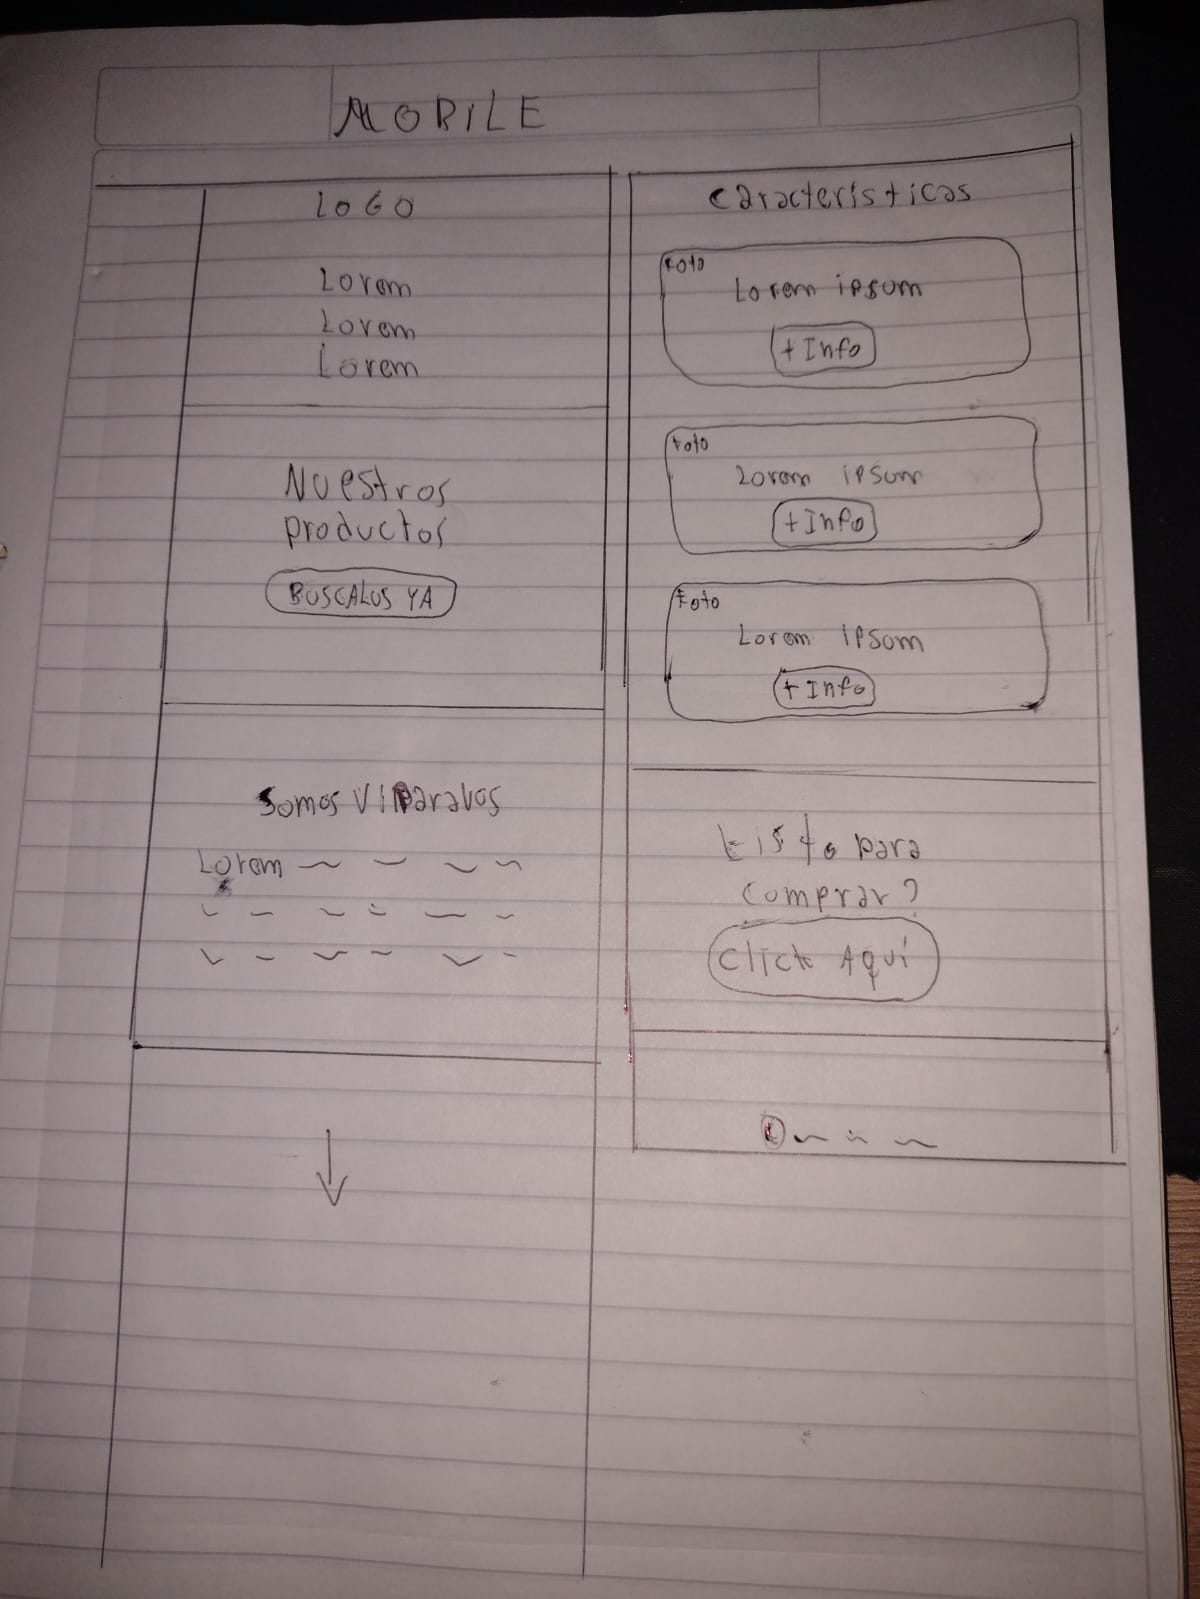 MOBILE
LOGO
Lorem
Lorem
Lorem
Nuestros
productos
BUSCALOS YA
Somos
Lorem
Caracteristicas
Foto
Lorem ipsum
+ Info
Foto
Lorem ipsum
+ Info
Foto
Lorem ipsum
+ Info
Listo para
comprar?
Click Aquí